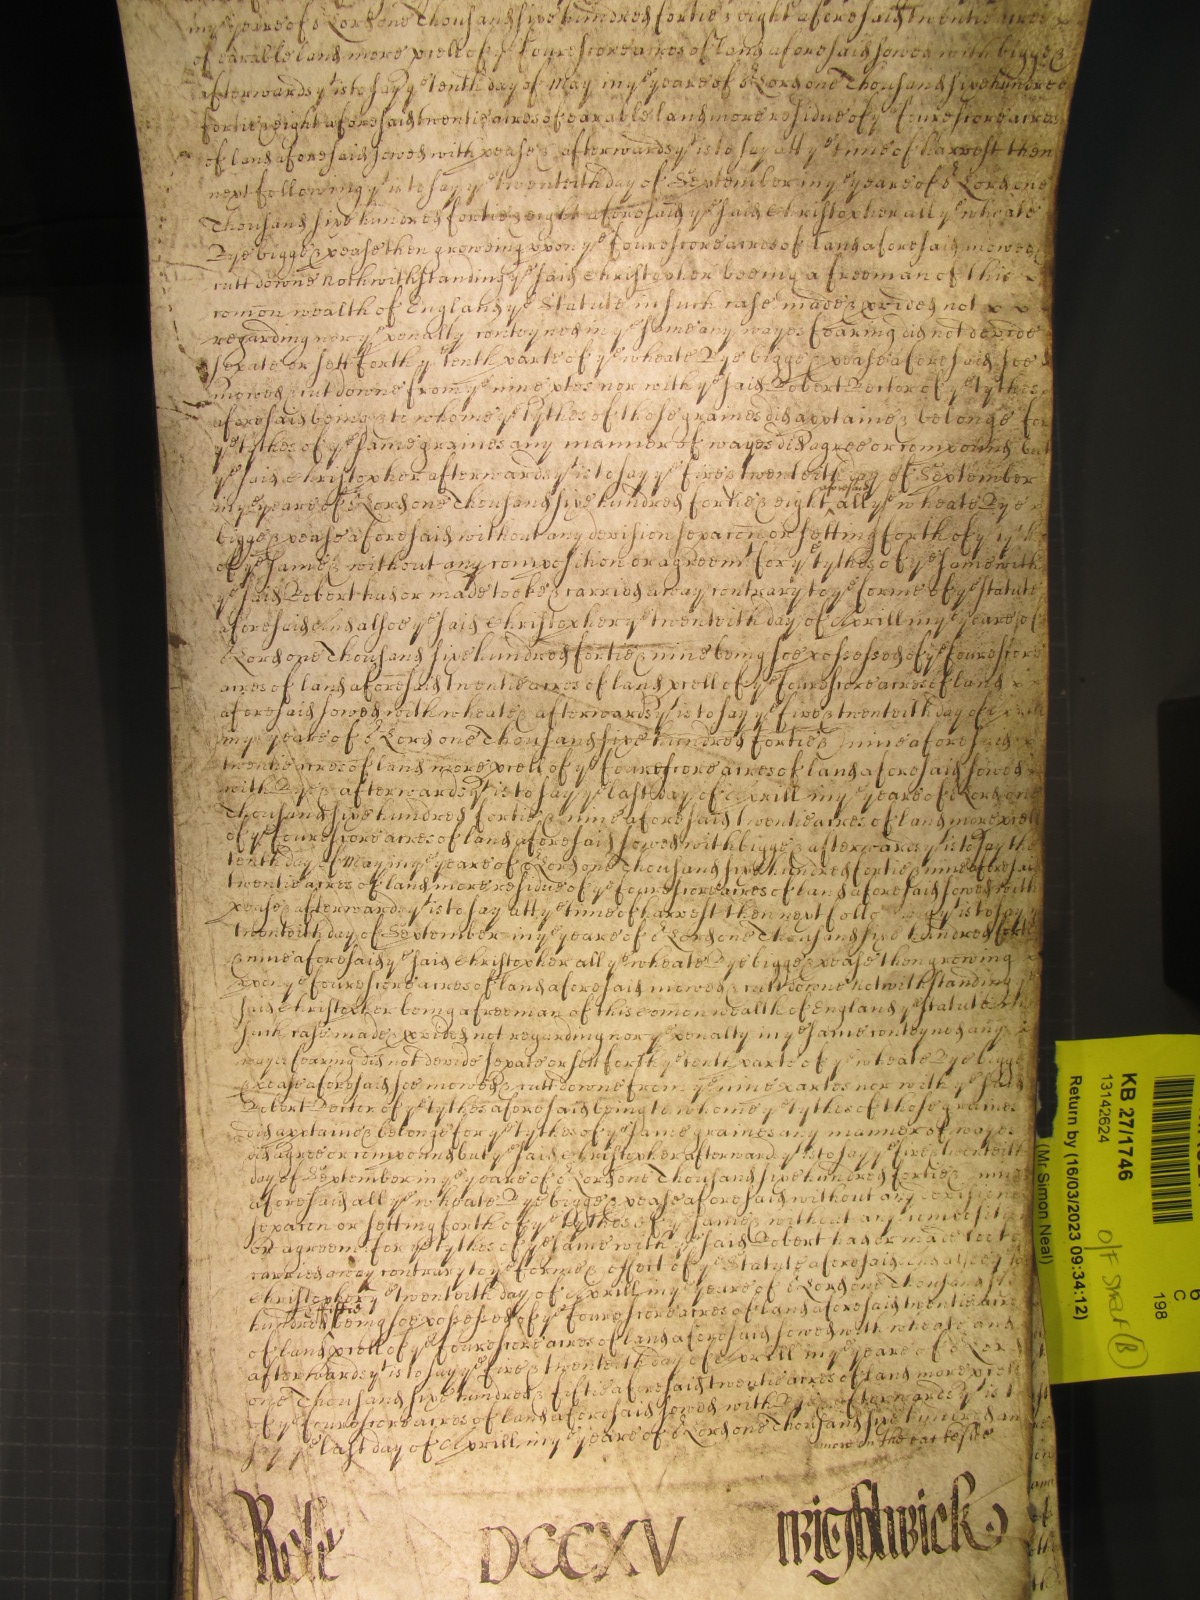 in ye yeare of or Lord one Thousand six hundred fortie & eight aforesaid twentie acres
of earable land more pcell of ye fourescore acres of land aforesaid sowed with bigge &
afterwards yt is to say ye tenth day of May in ye yeare of or Lord one Thousand six hundred
fortie & eight aforesaid twentie acres of earable land more residue of ye fourescore acres
of land aforesaid sowed with pease & afterwards yt is to say att ye time of harvest then
next following yt is to say ye twentith day of September in ye yeare of or Lord one
Thousand six hundred fortie & eight aforesaid ye said Christopher all ye wheate
Rye bigge & pease then growing upon ye fourescore acres of land aforesaid mowed
cutt downe Nothwithstanding ye said Christopher beeing a freeman of this
comon wealth of England ye Statute in such case made & pvided not
regarding nor ye penalty conteyned in ye same any wayes fearing did not devide
sepate or sett forth ye tenth parte of ye wheate Rye bigge & pease aforesaid soe
mowed & cut downe from ye nine ptes nor with ye said Robert Rector of ye tythes
aforesaid being & to whome ye tythes of those graines did appertaine & belonge for
ye tythes of ye same graines any manner of wayes did agree or compound but
ye said Christopher afterwards yt is to say ye five & twentith day of September
in ye yeare of or Lord one Thousand six hundred fortie & eight aforesaid all ye wheate Rye
bigge & pease aforesaid without any devision separacon or setting forth of ye tythes
of ye same & without any composition or agreemt for ye tythes of ye same with
ye said Robert had or made tooke & carried away contrary to ye forme of ye statute
aforesaid And alsoe ye said Christopher ye twentith day of Aprill in ye yeare of
or Lord one Thousand six hundred fortie & nine being soe possessed of ye fourescore
acres of land aforesaid twentie acres of land pcell of ye fourescore acres of land
aforesaid sowed with wheate & afterwards yt is to say ye five & twentith day of Aprill
in ye yeare of or Lord one Thousand six hundred fortie & nine aforesaid
twentie acres of land more pcell of ye fourescore acres of land aforesaid sowed
with Rye & afterwards yt is to say ye last day of Aprill in ye yeare of or Lord one
Thousand six hundred fortie & nine aforesaid twentie acres of land more pcell
of ye fourescore acres of land aforesaid sowed with bigge & afterwards yt is to say the
tenth day of May in ye yeare of or Lord one Thousand six hundred fortie & nine aforesaid
twentie acres of land more residue of ye fourescore acres of land aforesaid sowed with
pease & afterwards yt is to say att ye time of harvest then next follo yt is to say
twentith day of September in ye yeare of or Lord one Thousand six hundred fortie
& nine aforesaid ye said Christopher all ye wheate Rye bigge & pease then growing
upon ye fourescore acres of land aforesaid mowed & cutt downe notwithstanding ye
said Christopher being a freeman of this comon wealth of England ye statute in
such case made & pvided not regarding nor ye penalty in ye same conteyned any
wayes fearing did not devide sepate or sett forth ye tenth parte of ye wheate Rye bigge
& pease aforesaid soe mowed & cutt downe from ye nine partes nor with ye said
Robert Rector of ye tythes aforesaid being & to whome ye tythes of those graines
did apptaine & belonge for ye tythes of ye same graines any manner of wayes
did agree or compound but ye said Christopher afterwards yt is to say ye five & twentith
day of September in ye yeare of or Lord one Thousand six hundred fortie & nine
aforesaid all ye wheate Rye bigge & pease aforesaid without any devision
separacon or setting forth of ye tythes of ye same & without any composition
or agreemt for ye tythes of ye same with ye said Robert had or made tooke
carried away contrary to ye forme & effect of ye Statute aforesaid And alsoe ye said
Christopher ye twentith day of Aprill in ye yeare of or Lord one Thousand six
hundred & fiftie being soe possessed of ye fourescore acres of land aforesaid twentie acres
of land pcell of ye fourescore acres of land aforesaid sowed with wheate and
afterwards yt is to say ye five & twentith day of Aprill in ye yeare of or Lord
one Thousand six hundred & fiftie aforesaid twentie acres of land more pcell
of ye fourescore acres of land aforesaid sowed with Rye & afterwards yt is t
say ye last day of Aprill in ye yeare of or Lord one Thousand six hundred an
more on the backeside
Rolfe DCCXV Wightwick
KB 27/1746
13142624
Return by (16/03/2023 09:34:12)
(Mr Simon Neal)
O/F Strat (B)
198
C
6